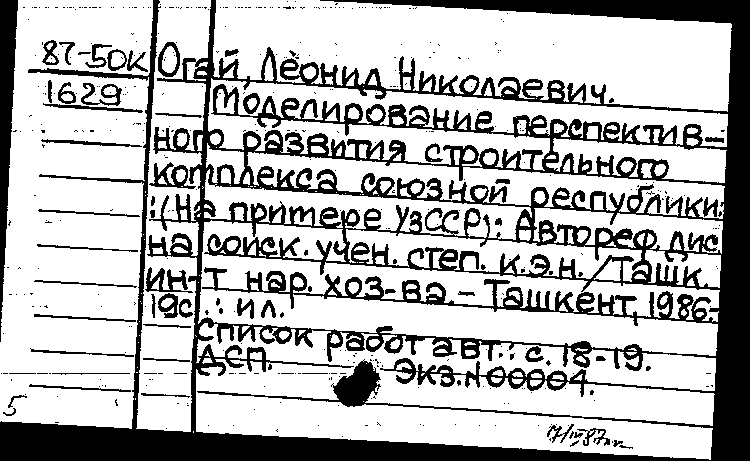 87-50К
1629
Огай, Леонид Николаевич.
Моделирование перспектив-
ного развития строительного
комплекса союзной республики:
:(На примере УзССР): Автореф. дис.
на соиск. учен. степ. к.э.н. /Ташк.
ин-т нар. хоз-ва.- Ташкент, 1986.-
19с.: ил.
Список работ авт.: с. 18-19.
ДСП. Экз.N00004.
5